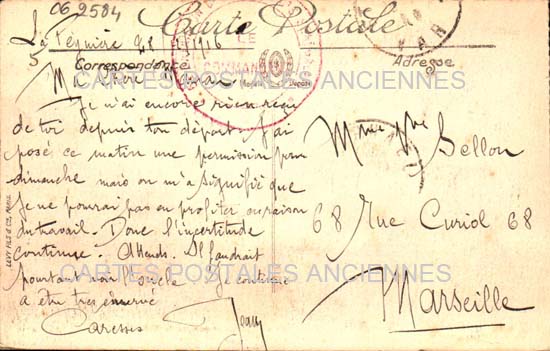 06 2584
Carte Postale
La Pépinière 28 1916
Correspondance
Adresse
LE
COMMAN
Modèle Déposé
VAR
Ma
CARTES POSTALES ANCIENNES
Je n'ai encore rien reçu
de toi depuis ton départ. J'ai
posé ce matin une permission pour
dimanche mais on m'a signifié que
je ne pourrai pas en profiter en raison
du travail. Donc l'incertitude
continue. Attends. Il faudrait
CARTES POSTALES ANCIENNES
pourtant mon oncle Je continue
a être très énervé
Caresses Jean
Mme Vve Sellon
68 Rue Curiol 68
Marseille
LEVY FILS & Cie, PARIS